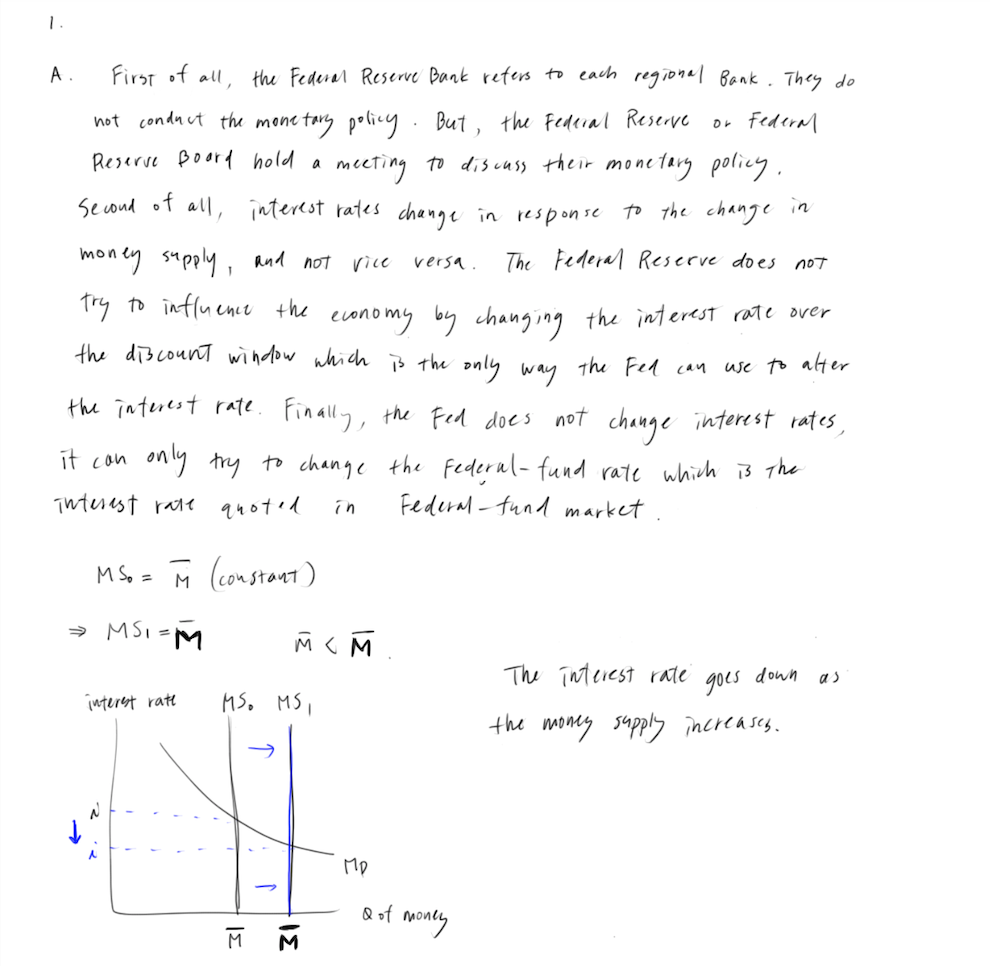 1.
A. First of all, the Federal Reserve Bank refers to each regional Bank. They do
not conduct the monetary policy. But, the Federal Reserve or Federal
Reserve Board hold a meeting to discuss their monetary policy.
Second of all, interest rates change in response to the change in
money supply, and not vice versa. The Federal Reserve does not
try to influence the economy by changing the interest rate over
the discount window which is the only way the Fed can use to alter
the interest rate. Finally, the Fed does not change interest rates,
it can only try to change the Federal-fund rate which is the
interest rate quoted in Federal-fund market.
MS₀ = M̅ (constant)
⇒ MS₁ = M̅ M̅ < M̅.
The interest rate goes down as
the money supply increases.
interest rate MS₀ MS₁
→
i
↓
i
MD
→
Q of money
M̅ M̅